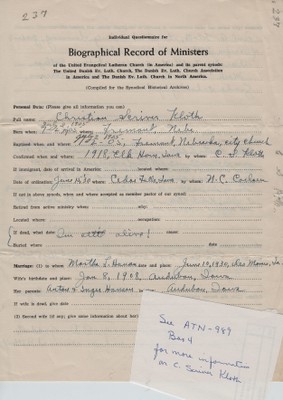 237
237
Individual Questionnaire for
Biographical Record of Ministers
of the United Evangelical Lutheran Church (in America) and its parent synods:
The United Danish Ev. Luth. Church, The Danish Ev. Luth. Church Association
in America and The Danish Ev. Luth. Church in North America.
(Compiled for the Synodical Historical Archives)
Personal Data: (Please give all information you can)
Full name: Christian Scriver Kloth
Born when: where: Fremont, Nebr
Baptized when and where: Fremont, Nebraska, city church
Confirmed when and where: 1918, Elk Horn, Iowa by whom: C. S. Kloth
If immigrated, date of arrival in America: located where:
Date of ordination: June 1930 where: Cedar Falls, Iowa by whom: N. C. Carlsen
If not in above synods, when and where accepted as member pastor of our synod:
Retired from active ministry when: why:
Located where: occupation:
If dead, what date: I'm still alive! where:
Buried where: date:
Marriage: (1) to whom Martha L. Hansen date and place: June 10, 1930, Des Moines, Ia
Wife's birthdate and place: Jan 8, 1908, Audubon, Iowa
Her parents: Anton & Inger Hansen Audubon, Iowa
If wife is dead, give date
(2) Second wife (if any; give same information about her)
See ATN-989
Box 4
for more information
on C. Scriver Kloth